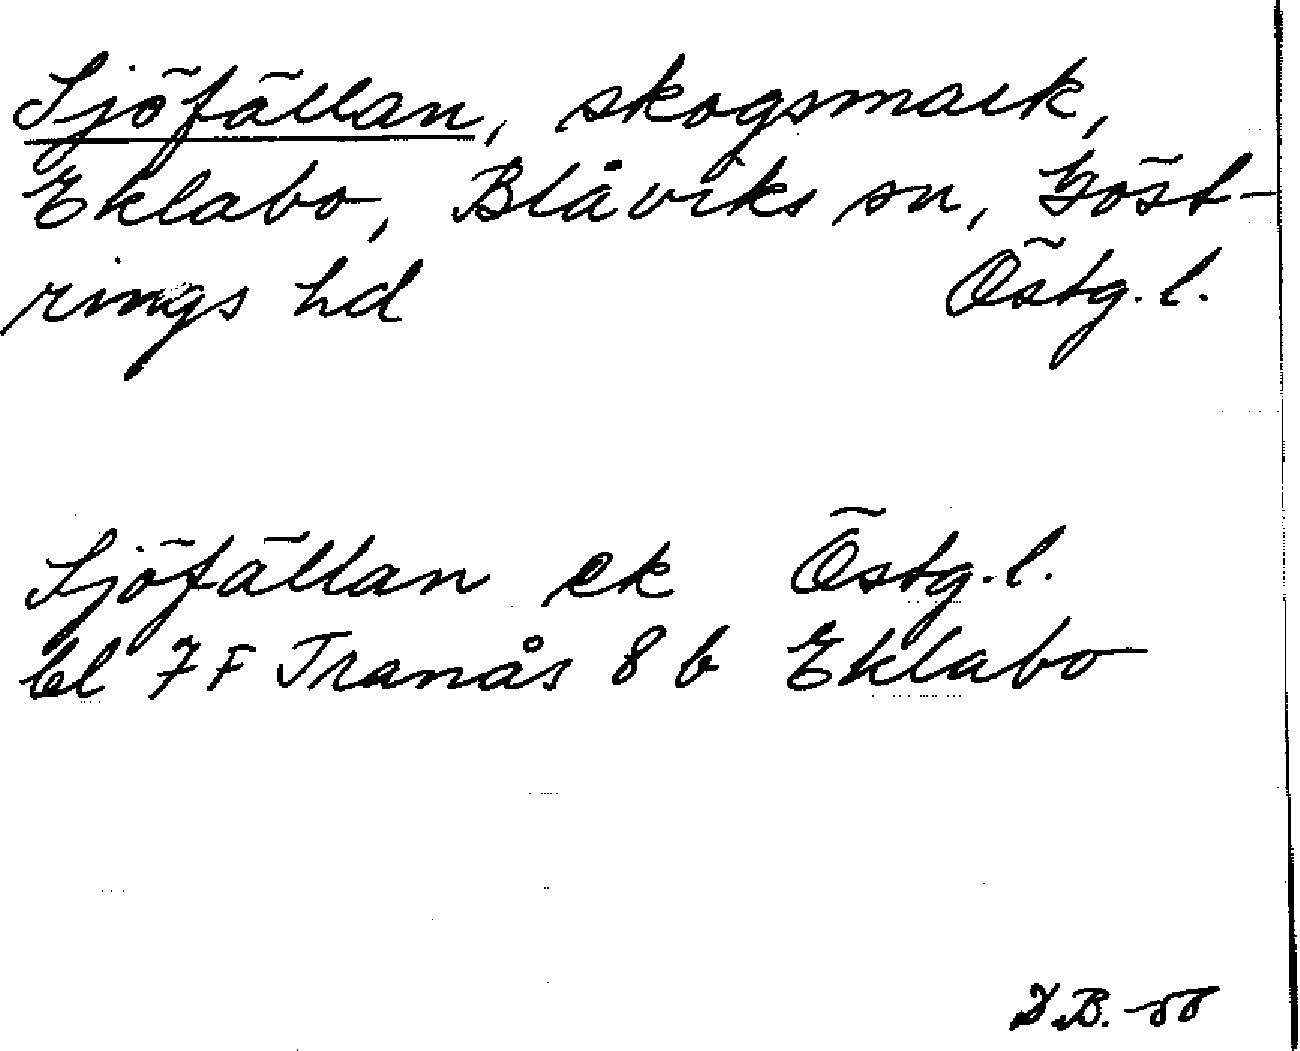 Sjöfällan, skogsmark,
Eklabo, Blåviks sn, Göst-
rings hd Östg.l.
Sjöfällan ek Östg.l.
bl 7F Tranås 8 b Eklabo